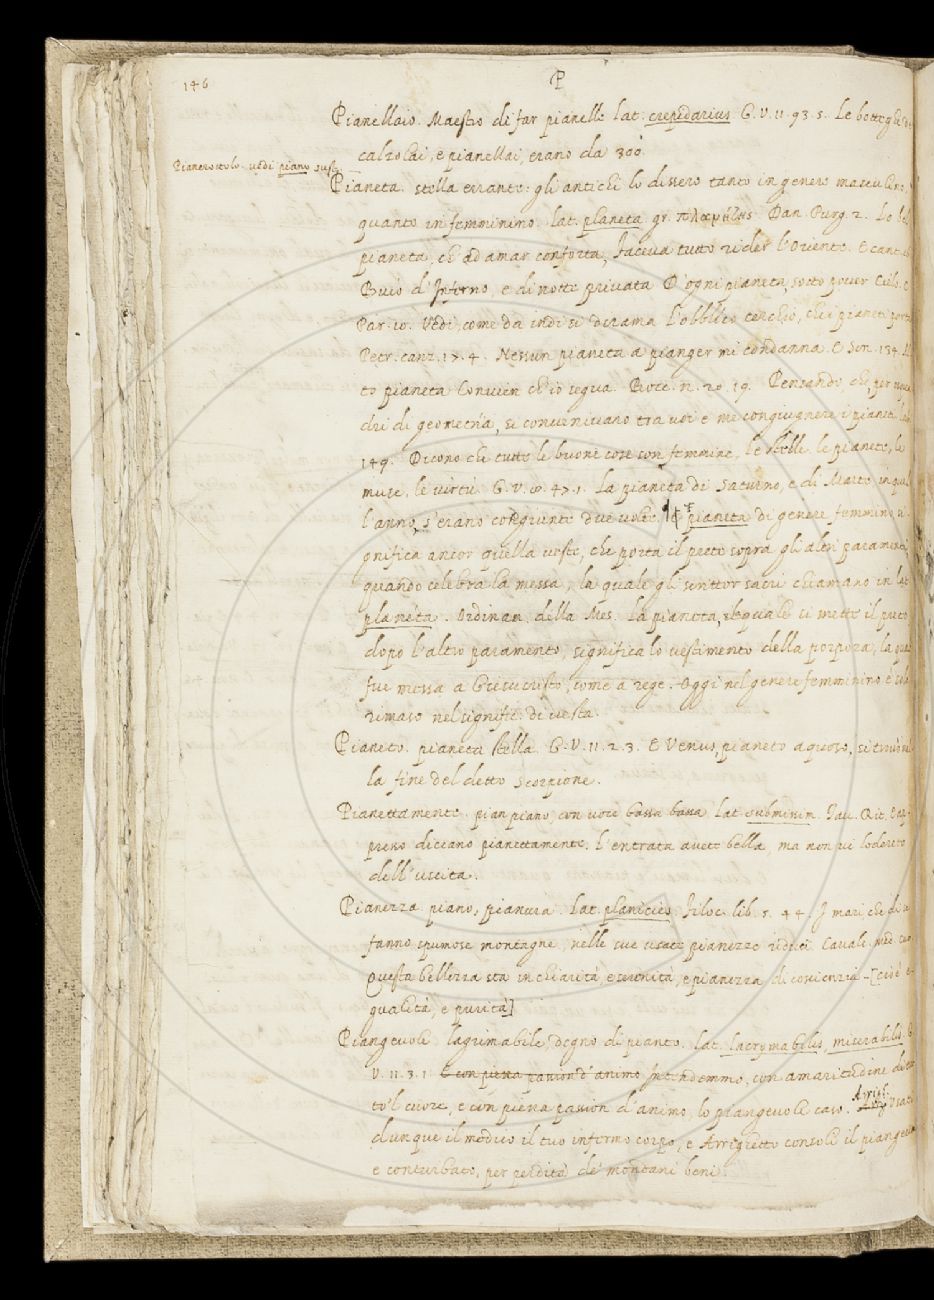 146
P
Pianellaio. Maestro di far pianelle lat. crepidarius G. V. 11. 93. 5. Le botteghe de
calzolai, e pianellai, erano da 300.
Pianerottolo. vedi piano sust.
Pianeta. stella errante: gli antichi lo dissero tanto in genere masculino,
quanto in femminino. lat. planeta gr. Dan. Purg. 2. Lo bel
pianeta, ch' ad amar conforta, Faceva tutto rider l'Oriente. E cant.
Buio d'Inferno, e di notte privata D'ogni pianeta, sotto pover Cielo. E
Par. 10. Vedi, come da indi si dirama L'obblico cerchio, che i pianeti porta
Petr. canz. 17. 4. Nessun pianeta a pianger mi condanna. E Son. 134.
to pianeta Convien ch'io segua. Bocc. n. 20. 19. Pensando, che, per
dri di geometria, si convenivano tra voi e me congiugnere i pianeti
149. Dicono che tutte le buone cose son femmine, le stelle, le pianete, le
muse, le virtù. G. V. 10. 47. 1. La pianeta di Saturno, e di Marte, in
l'anno, s'erano congiunte due volte. E pianeta di genere femminino
gnifica ancor quella veste, che porta il prete sopra gli altri paramenti,
quando celebra la messa, la quale gli scrittor sacri chiamano in lat
planeta. Ordinam. della Mes. La pianeta, la quale si mette il prete
dopo l'altro paramento, significa lo vestimento della porpora, la qual
fue messa a Giesucristo, come a rege. Oggi nel genere femminino è solo
rimaso nel signific. di vesta.
Pianeto. pianeta stella. G. V. 11. 2. 3. E Venus, pianeto aquoso, si trovò nel
la fine del detto Scorpione.
Pianettamente. pian piano, con voce bassa bassa lat. submissim. Tav. Rit. E ap-
presso diceano pianettamente. L'entrata avete bella, ma non vi loderete
dell'uscita.
Pianezza. piano, pianura. Lat. planicies. Filoc. lib. 5. 44. I mari, che di se
fanno spumose montagne, nelle sue usate pianezze riduci. Cavalc. med. cuor.
Questa bellezza sta in chiarità e serenità, e pianezza di coscienzia - [cioè e-
qualità, e purità]
Piangevole. lagrimabile, degno di pianto. lat. lacrymabilis, miserabilis. G.
V. 11. 3. 1. E con piena passion d'animo Intendemmo, con amaritudine di
to'l cuore, e con piena passion d'animo, lo piangevole caso. Arrigh.
dunque il medico il tuo infermo corpo, e Arrighetto consoli il piangevole
e conturbato, per perdita de' mondani beni.